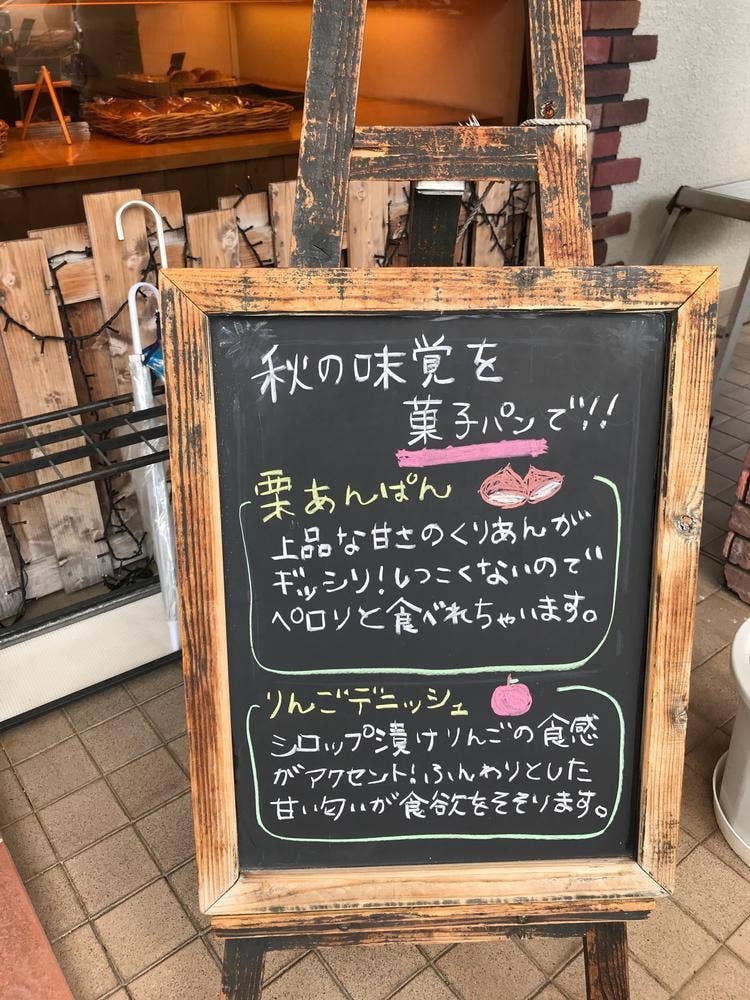 秋の味覚を
菓子パンで!!
栗あんぱん
上品な甘さのくりあんが
ギッシリ!しつこくないので
ペロリと食べれちゃいます。
りんごデニッシュ
シロップ漬けりんごの食感
がアクセント!ふんわりとした
甘い匂いが食欲をそそります。